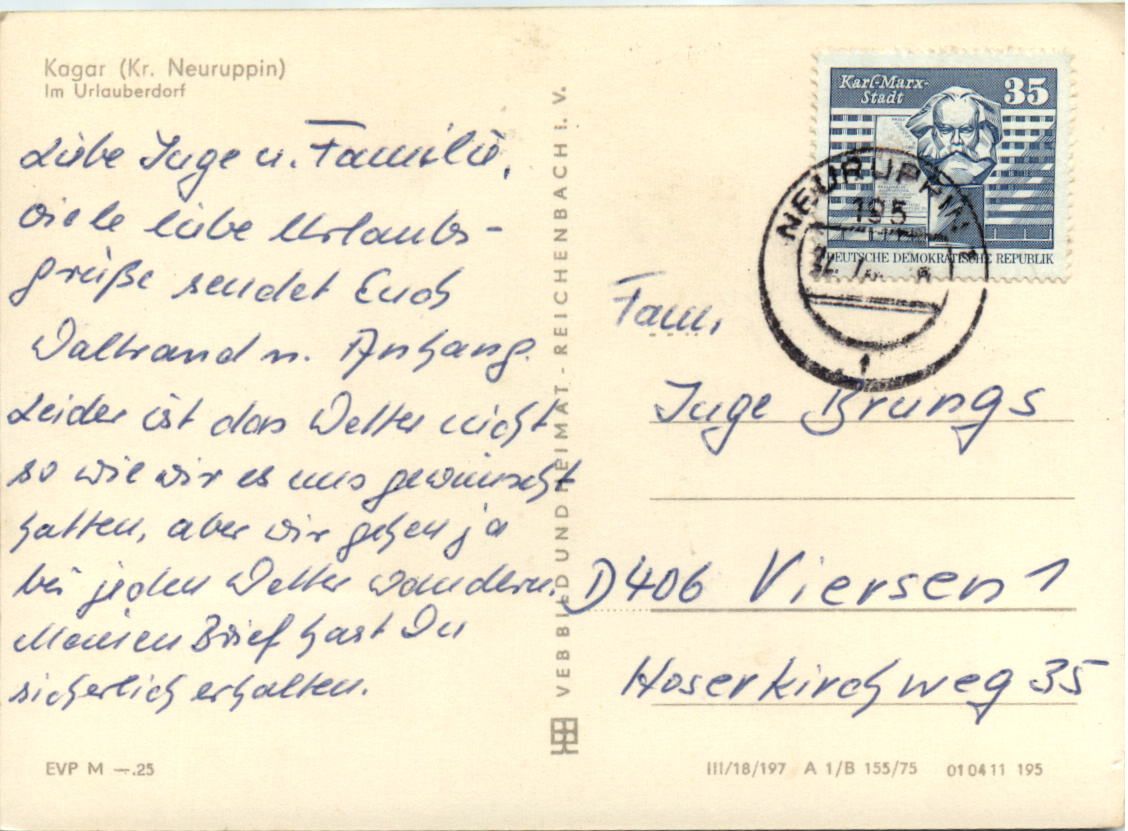 Kagar (Kr. Neuruppin)
Im Urlauberdorf
Liebe Inge u. Familie,
viele liebe Urlaubs-
grüße sendet Euch
Waltraud u. Anhang.
Leider ist das Wetter nicht
so wie wir es uns gewünscht
hatten, aber wir gehen ja
bei jeden Wetter wandern.
Meinen Brief hast Du
sicherlich erhalten.
EVP M —.25
VEB BILD UND HEIMAT - REICHENBACH i. V.
Karl-Marx-
Stadt
35
DEUTSCHE DEMOKRATISCHE REPUBLIK
NEURUPPIN 1
195
Fam.
Inge Brungs
D406 Viersen 1
Hoserkirchweg 35
III/18/197 A 1/B 155/75 01 04 11 195